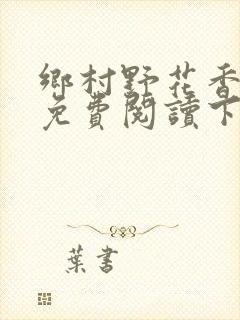 鄉村野花香
免費閱讀下
葉書